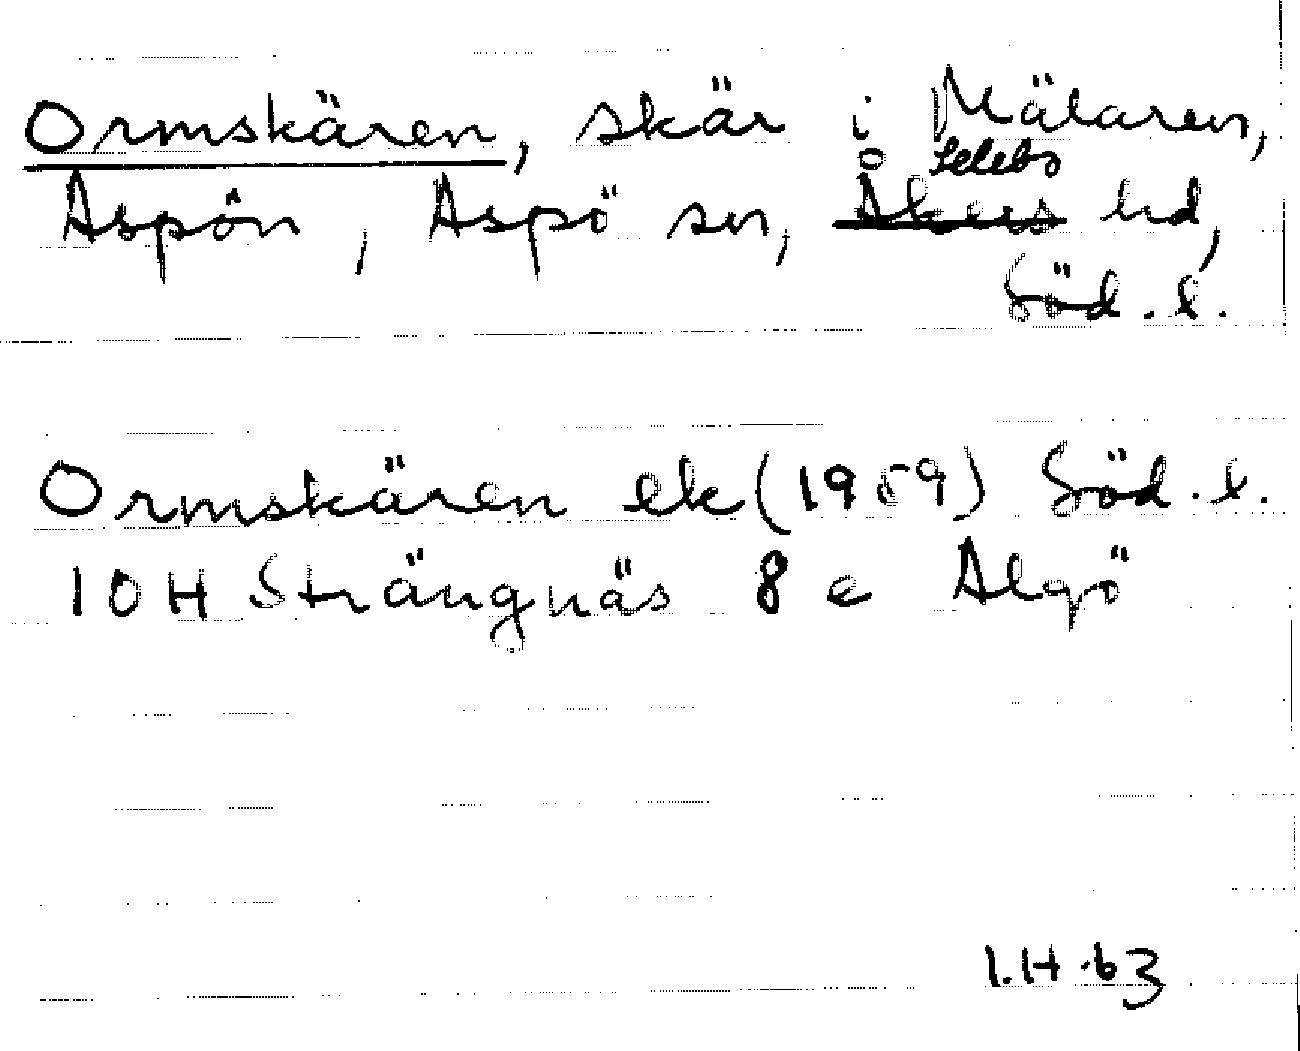 Ormskären, skär i Mälaren,
Selebo
Aspön, Aspö sn, Åkers hd,
Söd. l.
Ormskären ek (1959) Söd. l.
10H Strängnäs 8 c Algö
I.H. 63